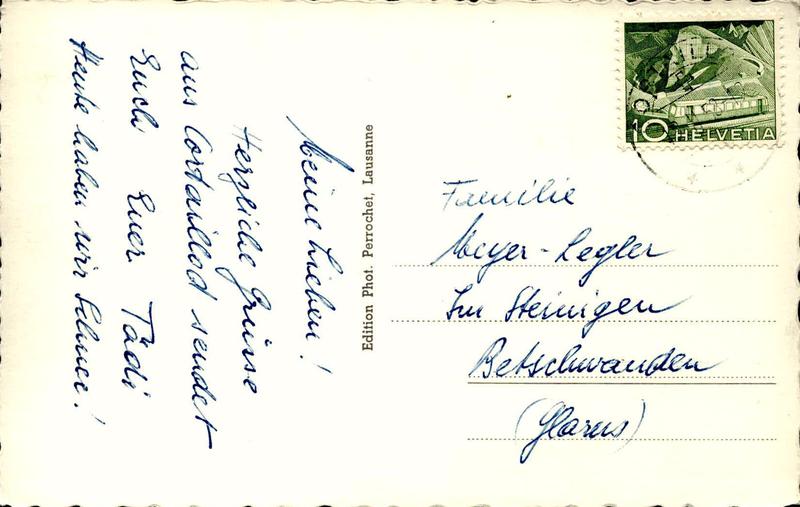 Meine Lieben!
Herzliche Grüsse
aus Cortaillod sendet
Euch Euer Tädi
Heute haben wir Schnee!
Edition Phot. Perrochet, Lausanne
10 HELVETIA
Familie
Meyer-Legler
Im Steinigen
Betschwanden
(Glarus)